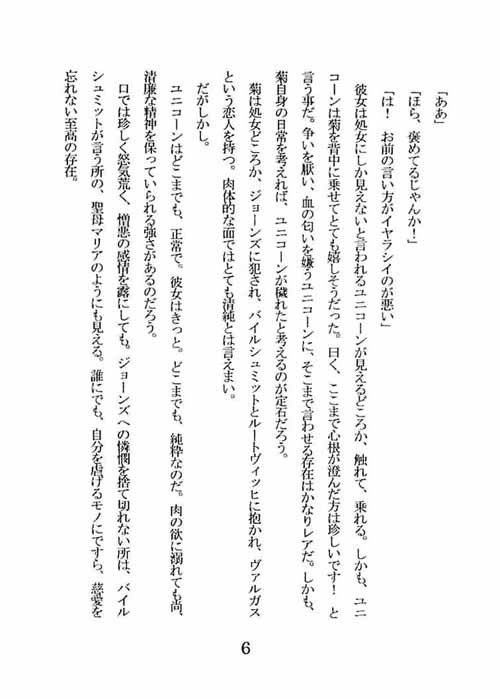 「ああ」
「ほら、褒めてるじゃんか！」
「は！　お前の言い方がイヤラシイのが悪い」
　彼女は処女にしか見えないと言われるユニコーンが見えるどころか、触れて、乗れる。しかも、ユニ
コーンは菊を背中に乗せてとても嬉しそうだった。曰く、ここまで心根が澄んだ方は珍しいです！　と
言う事だ。争いを厭い、血の匂いを嫌うユニコーンに、そこまで言わせる存在はかなりレアだ。しかも、
菊自身の日常を考えれば、ユニコーンが穢れたと考えるのが定石だろう。
　菊は処女どころか、ジョーンズに犯され、バイルシュミットとルートヴィッヒに抱かれ、ヴァルガス
という恋人を持つ。肉体的な面ではとても清純とは言えまい。
だがしかし。
　ユニコーンはどこまでも、正常で。彼女はきっと。どこまでも、純粋なのだ。肉の欲に溺れても尚、
清廉な精神を保っていられる強さがあるのだろう。
　口では珍しく怒気荒く、憎悪の感情を露にしても。ジョーンズへの憐憫を捨て切れない所は、バイル
シュミットが言う所の、聖母マリアのようにも見える。誰にでも、自分を虐げるモノにですら、慈愛を
忘れない至高の存在。
6